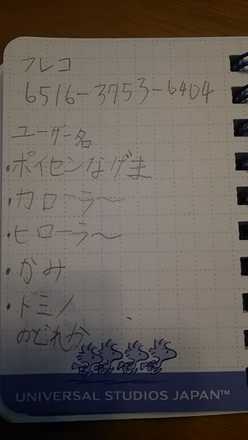 フレコ
6516-3753-6404
ユーザー名
・ポイセンなげま
・カローラ〜
・ヒローラ〜
・かみ
・ドミノ
のどれか
UNIVERSAL STUDIOS JAPAN™